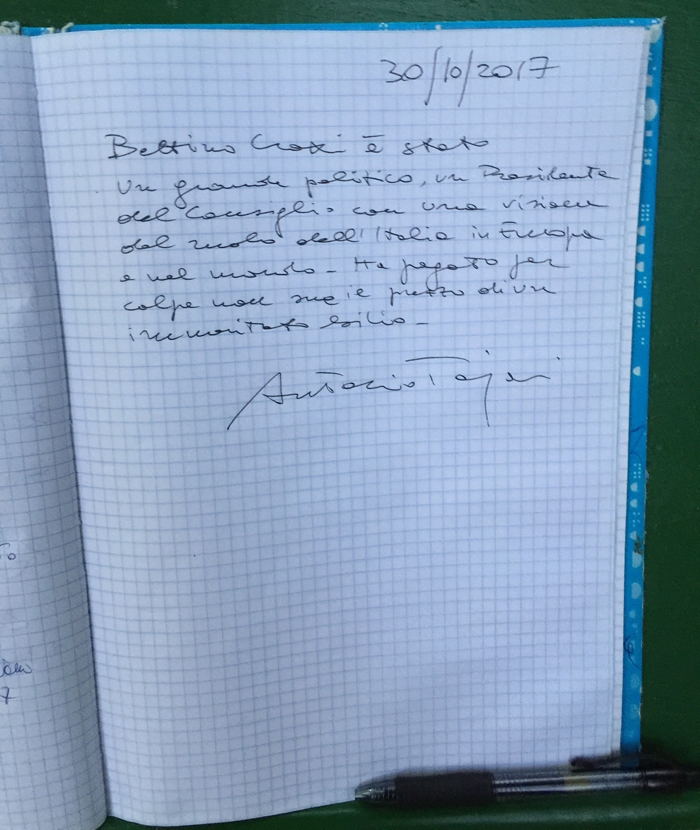 30/10/2017
Bettino Craxi è stato
un grande politico, un Presidente
del Consiglio con una visione
del ruolo dell'Italia in Europa
e nel mondo - Ha pagato per
colpe non sue il prezzo di un
immeritato esilio -
Antonio Tajani
7